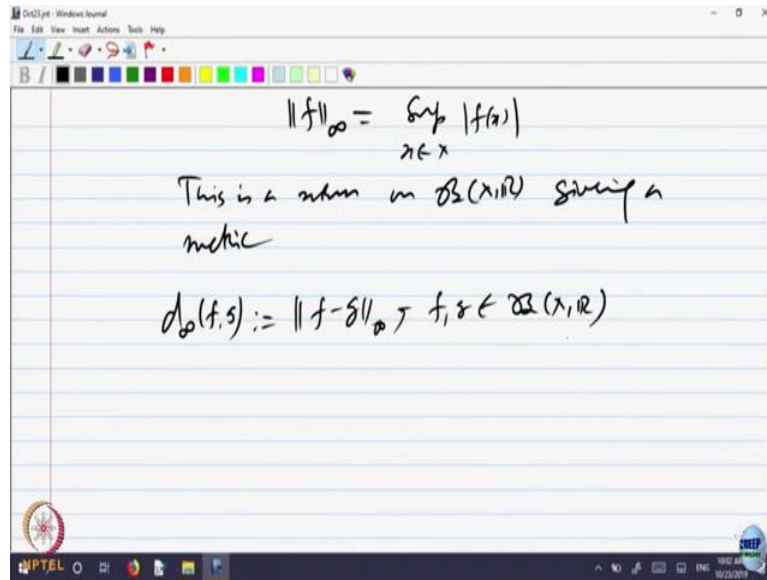 Oct23.jnt - Windows Journal
File Edit View Insert Actions Tools Help
B I
‖f‖∞ = Sup |f(x)|
x∈X
This is a norm on B(X,ℝ) giving a
metric
d∞(f,g) := ‖f-g‖∞, f,g ∈ B(X,ℝ)
NPTEL
CDEEP
ENG
10:02 AM
10/23/2019